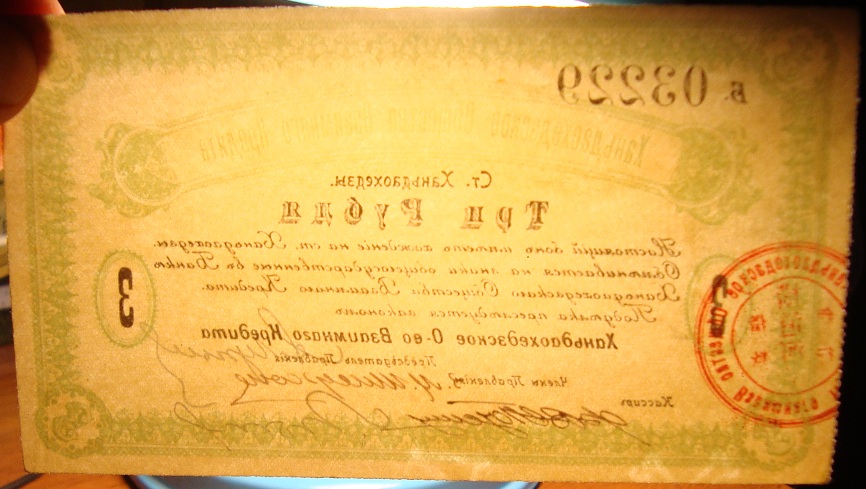 Б. 03229
Ханьдаохедзское Общество Взаимного Кредита
Ст. Ханьдаохедзы.
Три Рубля
Настоящий бонъ имѣетъ хожденіе на ст. Ханьдаохедзы.
Обмѣнивается на знаки общегосударственные въ Банкѣ
Ханьдаохедзскаго Общества Взаимнаго Кредита.
Поддѣлка преслѣдуется закономъ
3
3
Ханьдаохедзское О-во Взаимнаго Кредита
Предсѣдатель Правленія
Члены Правленія
Кассиръ
Ханьдаохедзское Общество Взаимнаго